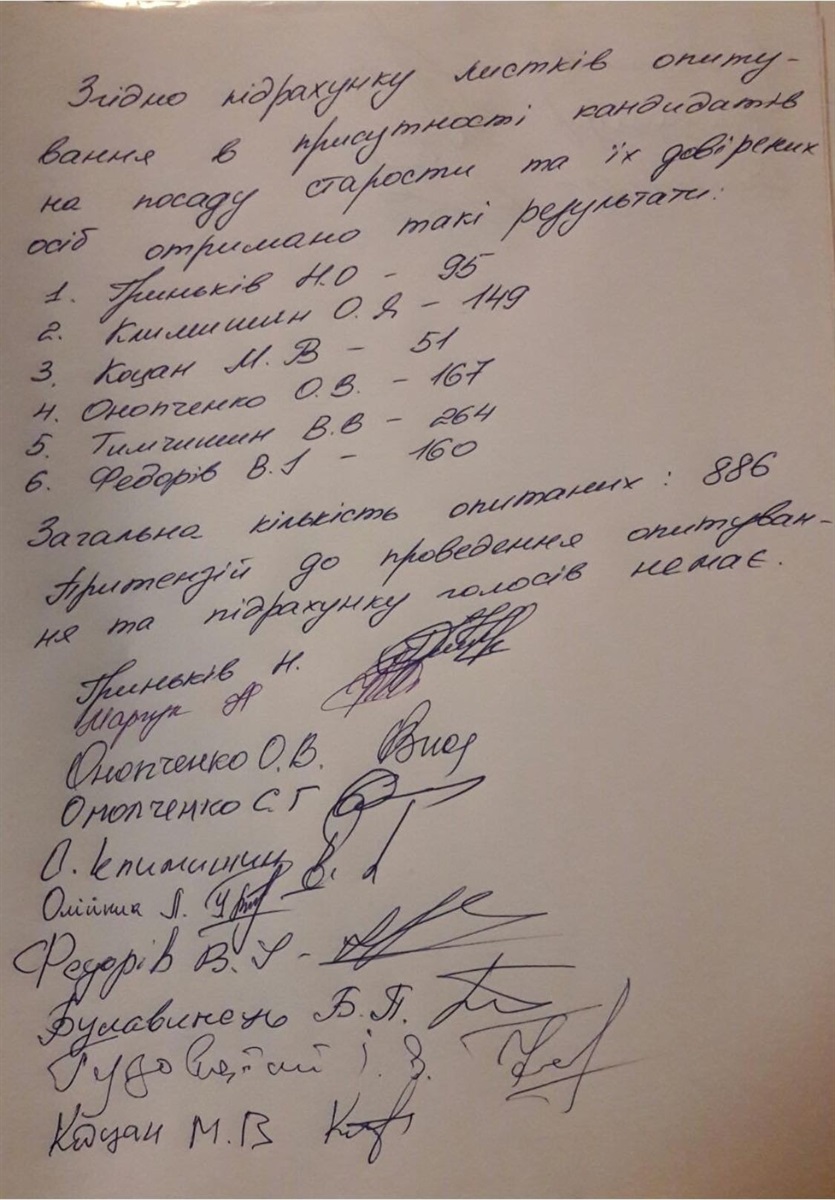 Згідно підрахунку листків опиту-
вання в присутності кандидатів
на посаду старости та їх довірених
осіб отримано такі результати:
1. Гриньків Н.О - 95
2. Климишин О.Я - 149
3. Коцан М.В - 51
4. Онопченко О.В. - 167
5. Тимчишин В.В - 264
6. Федорів В.І - 160
Загальна кількість опитаних: 886
Притензій до проведення опитуван-
ня та підрахунку голосів немає.
Гриньків Н.
Марчук А
Онопченко О.В.
Онопченко С.Г
О. Климишин
Олійник Л.
Федорів В.І -
Булавинець Б.П.
І. В.
Коцан М.В